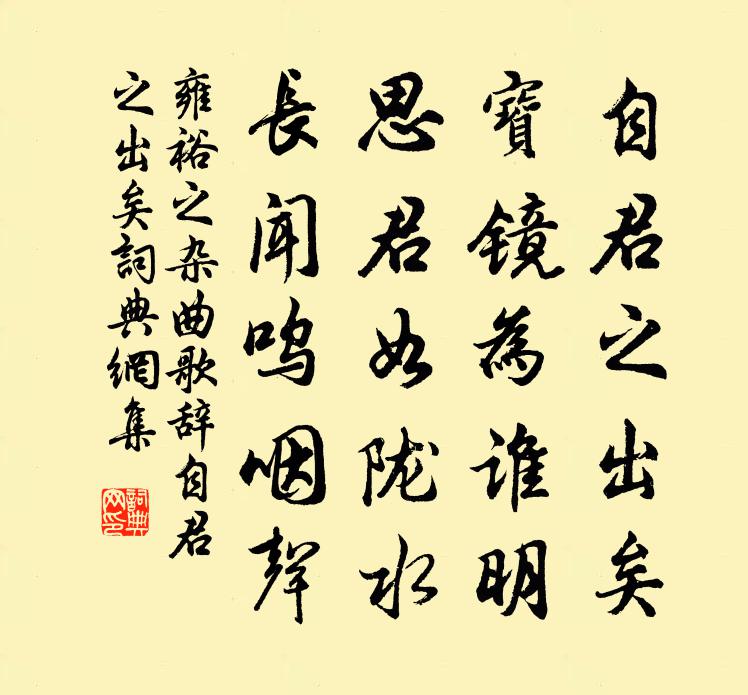 自君之出矣
寶镜為谁明
思君如陇水
長闻鸣咽聲
雍裕之杂曲歌辞自君
之出矣詞典網集
詞典
网印